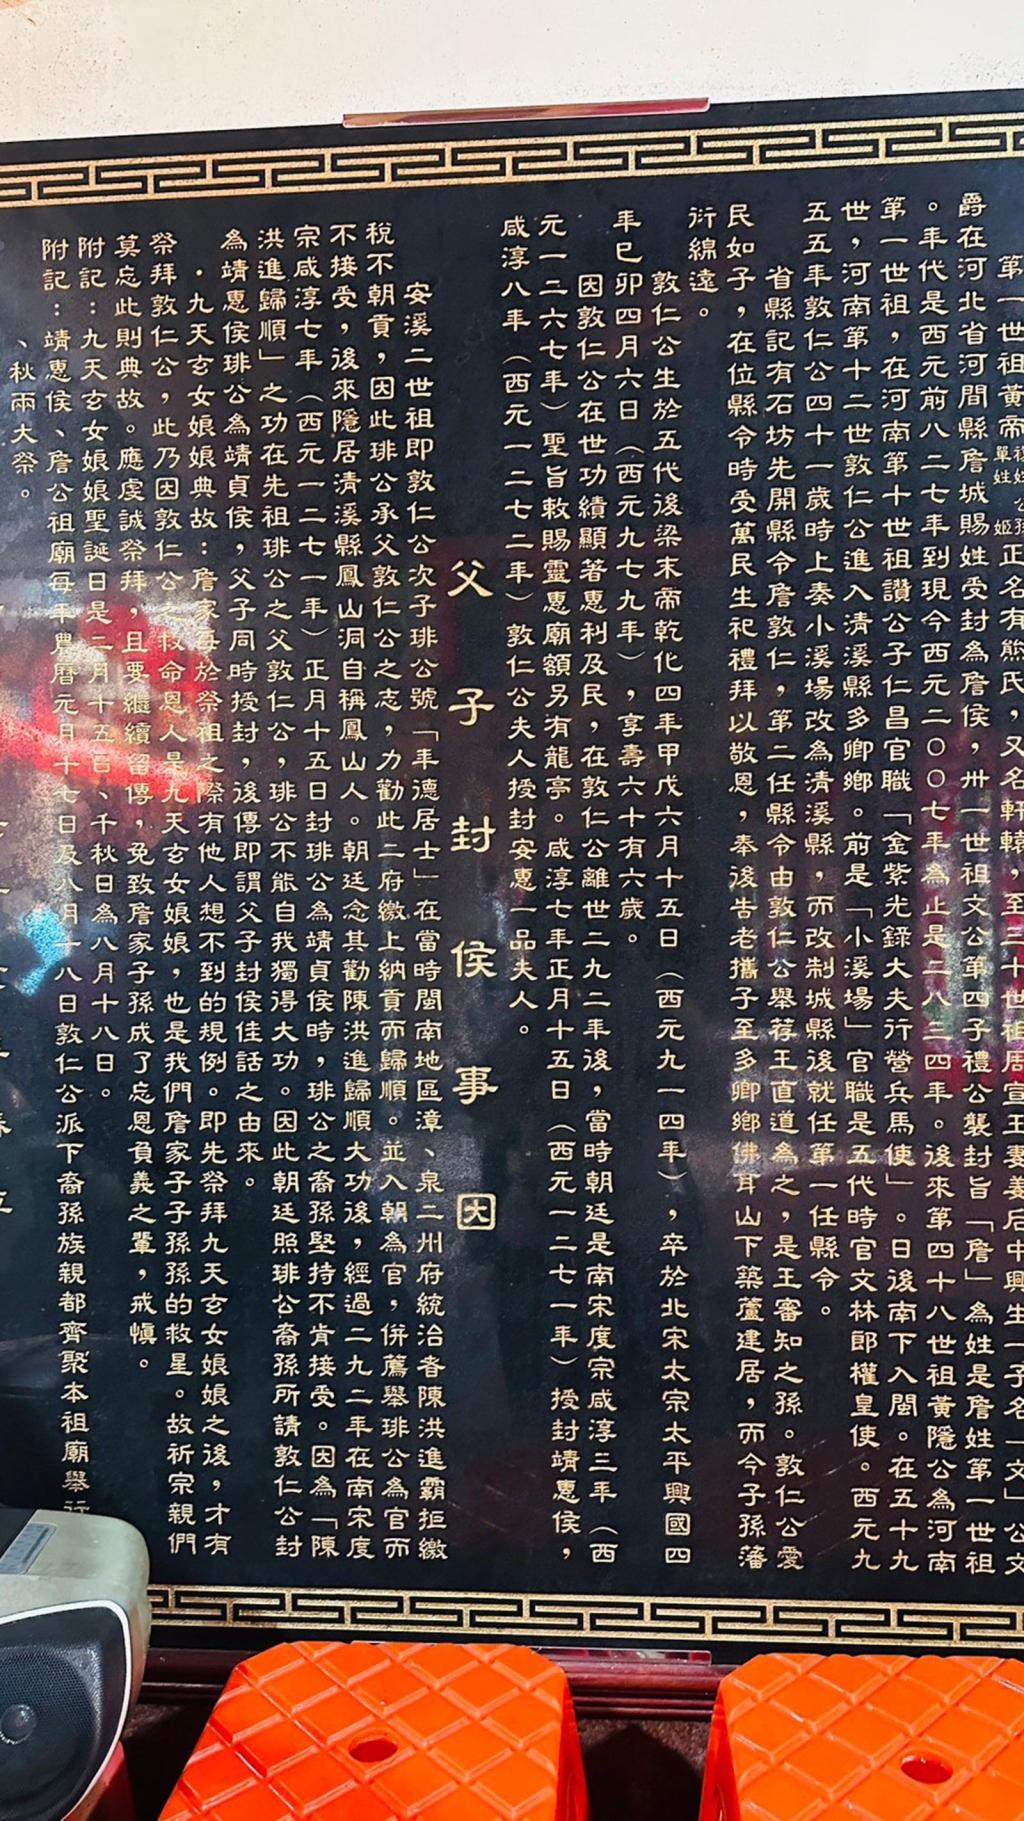 第一世祖黃帝複姓公孫單姓姬正名有熊氏，又名軒轅，至三十世祖周宣王妻姜后中興生一子名「文」公文
爵在河北省河間縣詹城賜姓受封為詹侯，卅一世祖文公第四子禮公襲封旨「詹」為姓是詹姓第一世祖
。年代是西元前八二七年到現今西元二〇〇七年為止是二八三四年。後來第四十八世祖黃隱公為河南
第一世祖，在河南第十世祖讚公子仁昌官職「金紫光錄大夫行營兵馬使」。日後南下入閩。在五十九
世，河南第十二世敦仁公進入清溪縣多卿鄉。前是「小溪場」官職是五代時官文林郎權皇使。西元九
五五年敦仁公四十一歲時上奏小溪場改為清溪縣，而改制城縣後就任第一任縣令。
省縣記有石坊先開縣令詹敦仁，第二任縣令由敦仁公舉荐王直道為之，是王審知之孫。敦仁公愛
民如子，在位縣令時受萬民生祀禮拜以敬恩，奉後告老攜子至多卿鄉佛耳山下築蘆建居，而今子孫藩
衍綿遠。
敦仁公生於五代後梁末帝乾化四年甲戊六月十五日（西元九一四年），卒於北宋太宗太平興國四
年巳卯四月六日（西元九七九年），享壽六十有六歲。
因敦仁公在世功績顯著惠利及民，在敦仁公離世二九二年後，當時朝廷是南宋度宗咸淳三年（西
元一二六七年）聖旨敕賜靈惠廟額另有龍亭。咸淳七年正月十五日（西元一二七一年）授封靖惠侯，
咸淳八年（西元一二七二年）敦仁公夫人授封安惠一品夫人。
父子封侯事因
安溪二世祖即敦仁公次子琲公號「丰德居士」在當時閩南地區漳、泉二州府統治者陳洪進霸拒繳
稅不朝貢，因此琲公承父敦仁公之志，力勸此二府繳上納貢而歸順。並入朝為官，併薦舉琲公為官而
不接受，後來隱居清溪縣鳳山洞自稱鳳山人。朝廷念其勸陳洪進歸順大功後，經過二九二年在南宋度
宗咸淳七年（西元一二七一年）正月十五日封琲公為靖貞侯時，琲公之裔孫堅持不肯接受。因為「陳
洪進歸順」之功在先祖琲公之父敦仁公，琲公不能自我獨得大功。因此朝廷照琲公裔孫所請敦仁公封
為靖惠侯琲公為靖貞侯，父子同時授封，後傳即謂父子封侯佳話之由來。
．九天玄女娘娘典故：詹家每於祭祖之際有他人想不到的規例。即先祭拜九天玄女娘娘之後，才有
祭拜敦仁公，此乃因敦仁公之救命恩人是九天玄女娘娘，也是我們詹家子子孫孫的救星。故祈宗親們
莫忘此則典故。應虔誠祭拜，且要繼續留傳，免致詹家子孫成了忘恩負義之輩，戒慎。
附記：九天玄女娘娘聖誕日是二月十五日、千秋日為八月十八日。
附記：靖惠侯、詹公祖廟每年農曆元月十七日及八月十八日敦仁公派下裔孫族親都齊聚本祖廟舉行
、秋兩大祭。